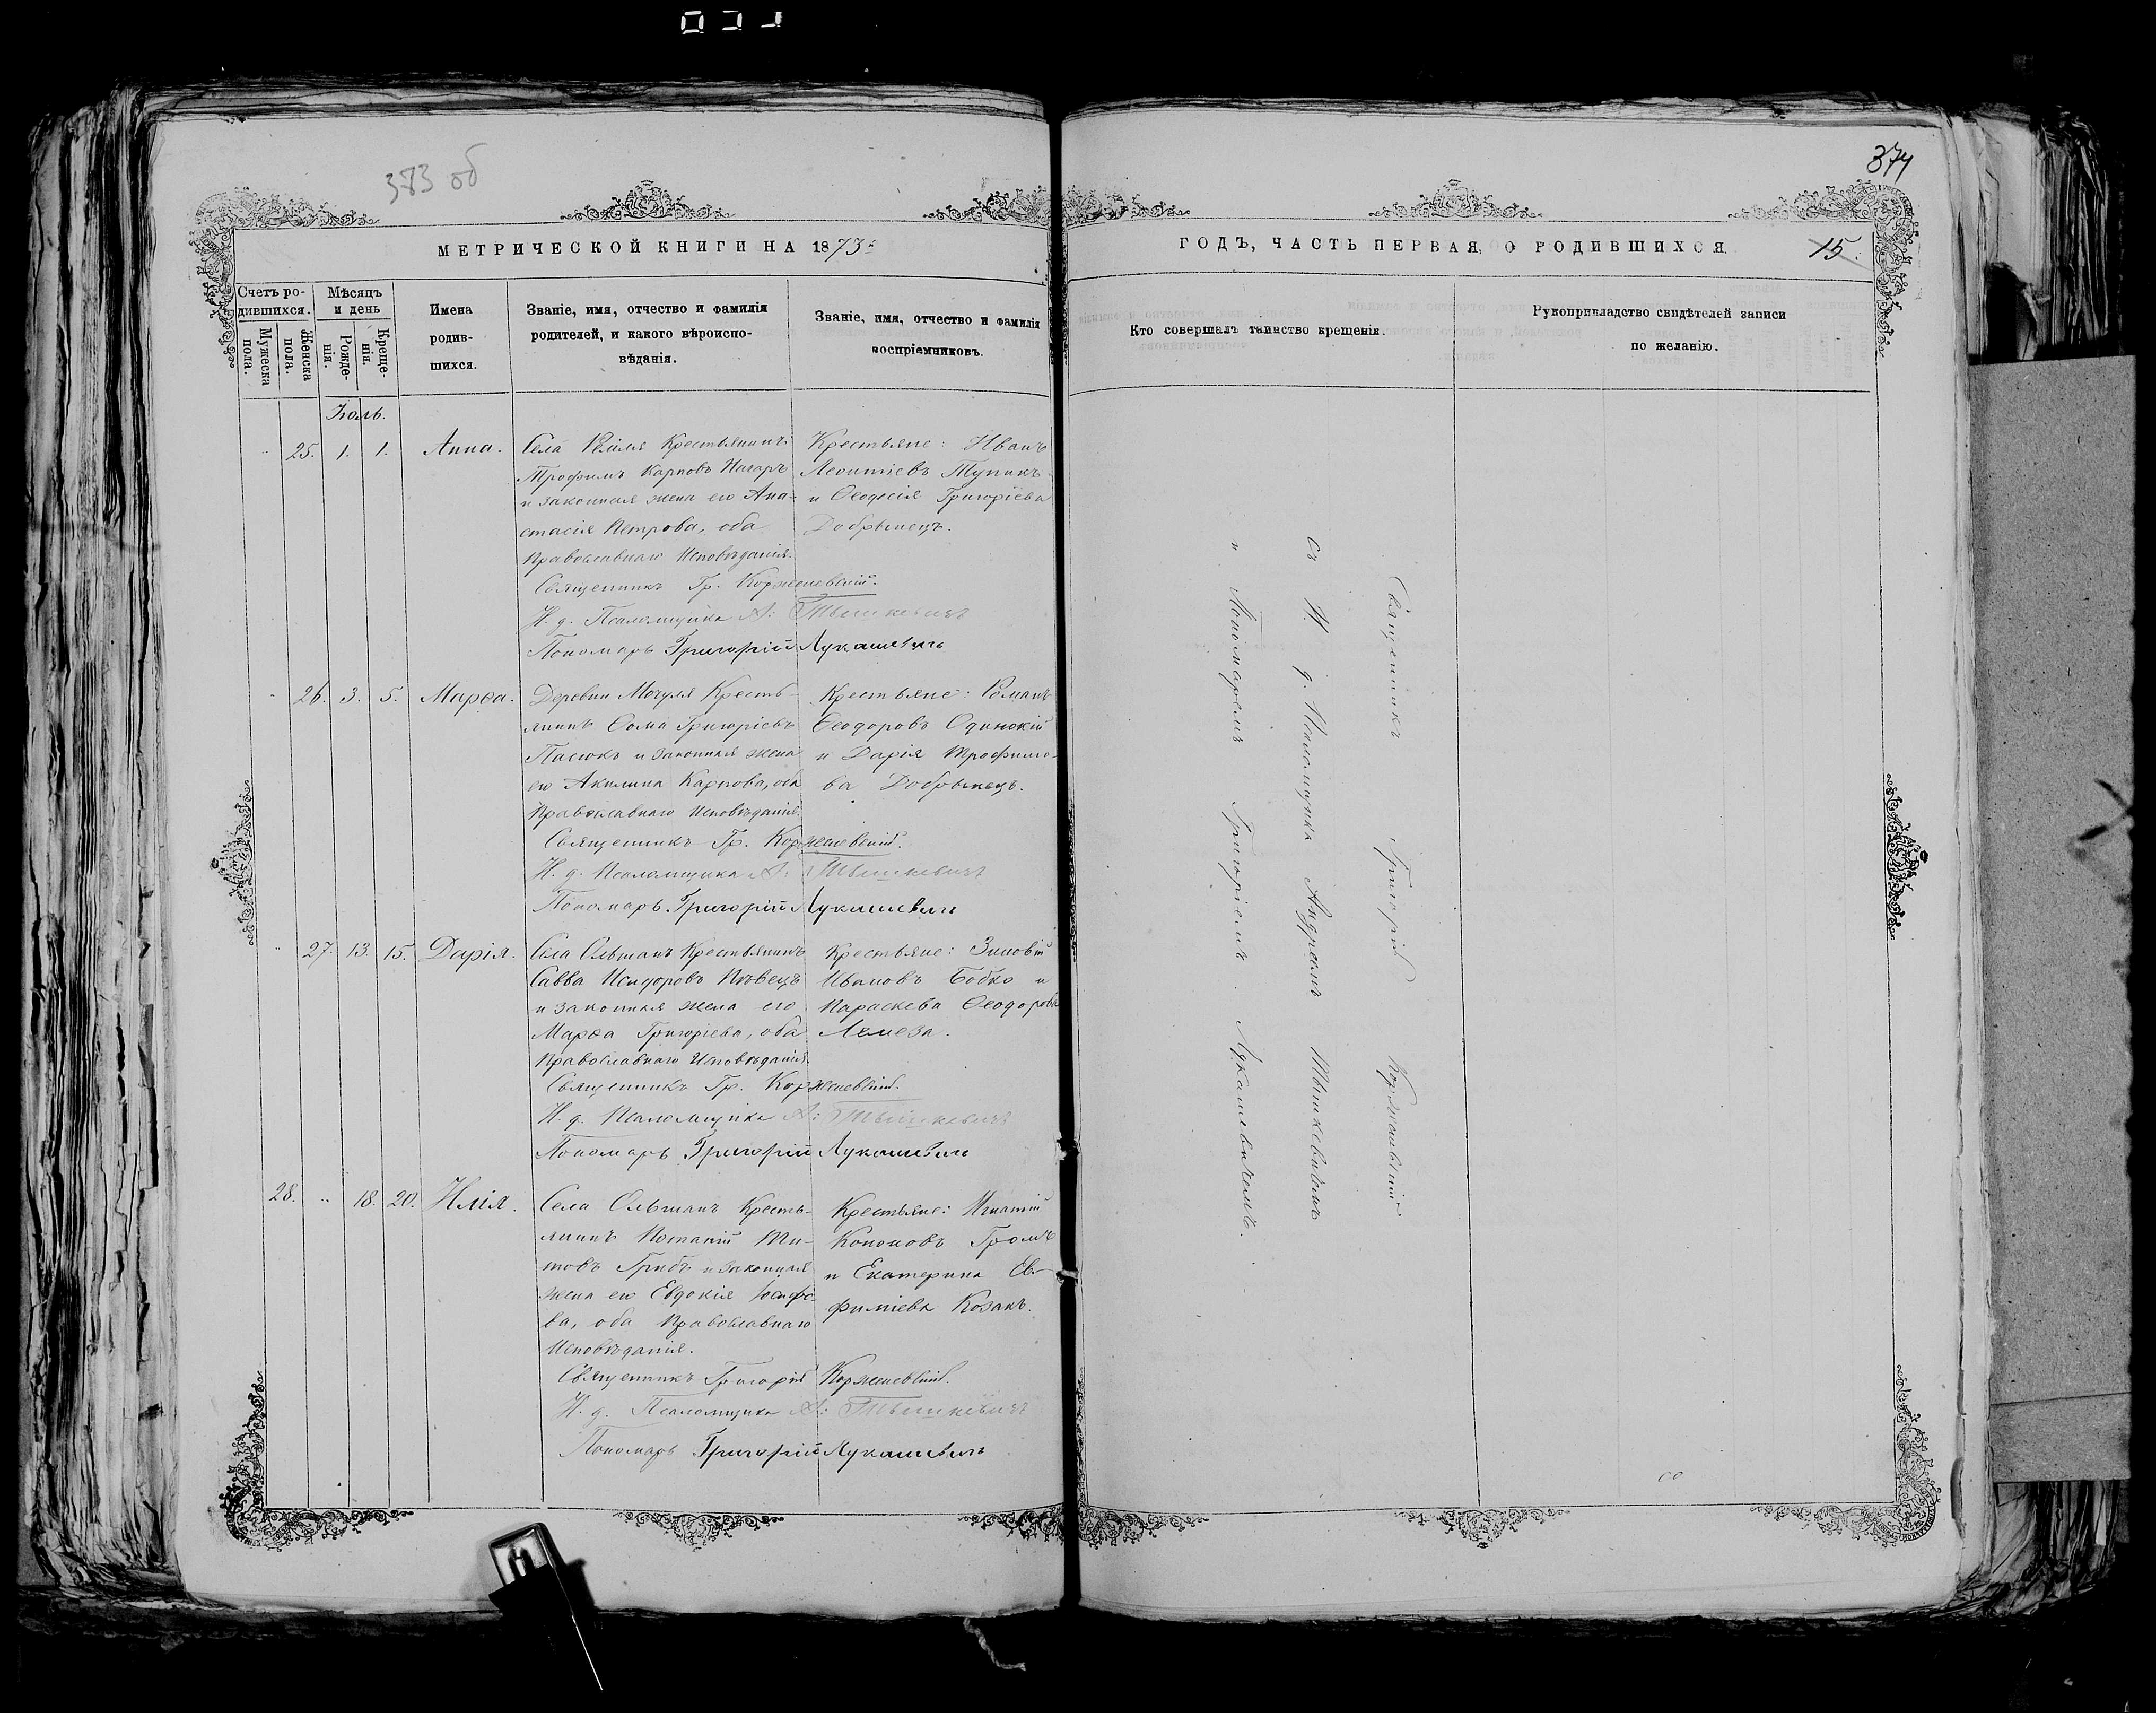 383 об
374
МЕТРИЧЕСКОЙ КНИГИ НА 1873й
ГОДЪ, ЧАСТЬ ПЕРВАЯ, О РОДИВШИХСЯ.
15.
Счетъ ро-
дившихся.
Мужеска
пола.
Женска
пола.
Мѣсяцъ
и день
Рожде-
нія.
Креще-
нія.
Имена
родив-
шихся.
Званіе, имя, отчество и фамилія
родителей, и какого вѣроиспо-
вѣданія.
Званіе, имя, отчество и фамилія
воспріемниковъ.
Кто совершалъ таинство крещенія.
Рукоприкладство свидѣтелей записи
по желанію.
Іюль.
25. 1. 1. Анна.
Села Ремля Крестьянинъ
Трофимъ Карповъ
и законная жена его Ана-
стасія Петрова, оба
Православнаго Исповѣданія.
Крестьяне: Иванъ
Леонтіевъ Тупикъ
и Ѳеодосія Григоріева
Добрынецъ.
Священникъ Гр. Корженевскій.
И. д. Псаломщика А: Тышкевичъ
Пономарь Григорій Лукашевичъ
26. 3. 5. Марѳа.
Деревни Мочуля Кресть-
янинъ Ѳома Григоріевъ
Пасюкъ и законная жена
его Акилина Карпова, оба
Православнаго Исповѣданія.
Крестьяне: Романъ
Ѳеодоровъ Одинокій
и Дарія Трофимо-
ва Добрынецъ.
Священникъ Гр. Корженевскій.
И. д. Псаломщика А: Тышкевичъ
Пономарь Григорій Лукашевичъ
27. 13. 15. Дарія.
Села Ольшанъ Крестьянинъ
Савва Исидоровъ Пѣвецъ
и законная жена его
Марѳа Григоріева, оба
Православнаго Исповѣданія.
Крестьяне: Зиновій
Ивановъ Бобко и
Параскева Ѳеодорова
Лемеза.
Священникъ Гр. Корженевскій.
И. д. Псаломщика А: Тышкевичъ
Пономарь Григорій Лукашевичъ
28. 18. 20. Илія.
Села Ольшанъ Кресть-
янинъ Потапій Ти-
товъ Грибъ и законная
жена его Евдокія Іосифо-
ва, оба Православнаго
Исповѣданія.
Крестьяне: Игнатій
Кононовъ Громъ
и Екатерина Ев-
фиміева Козакъ.
Священникъ Григорій Корженевскій.
И. д. Псаломщика А: Тышкевичъ
Пономарь Григорій Лукашевичъ
Священникъ Григорій Корженевскій
съ И. д. Псаломщика Андреемъ Тышкевичемъ
и Пономаремъ Григоріемъ Лукашевичемъ.